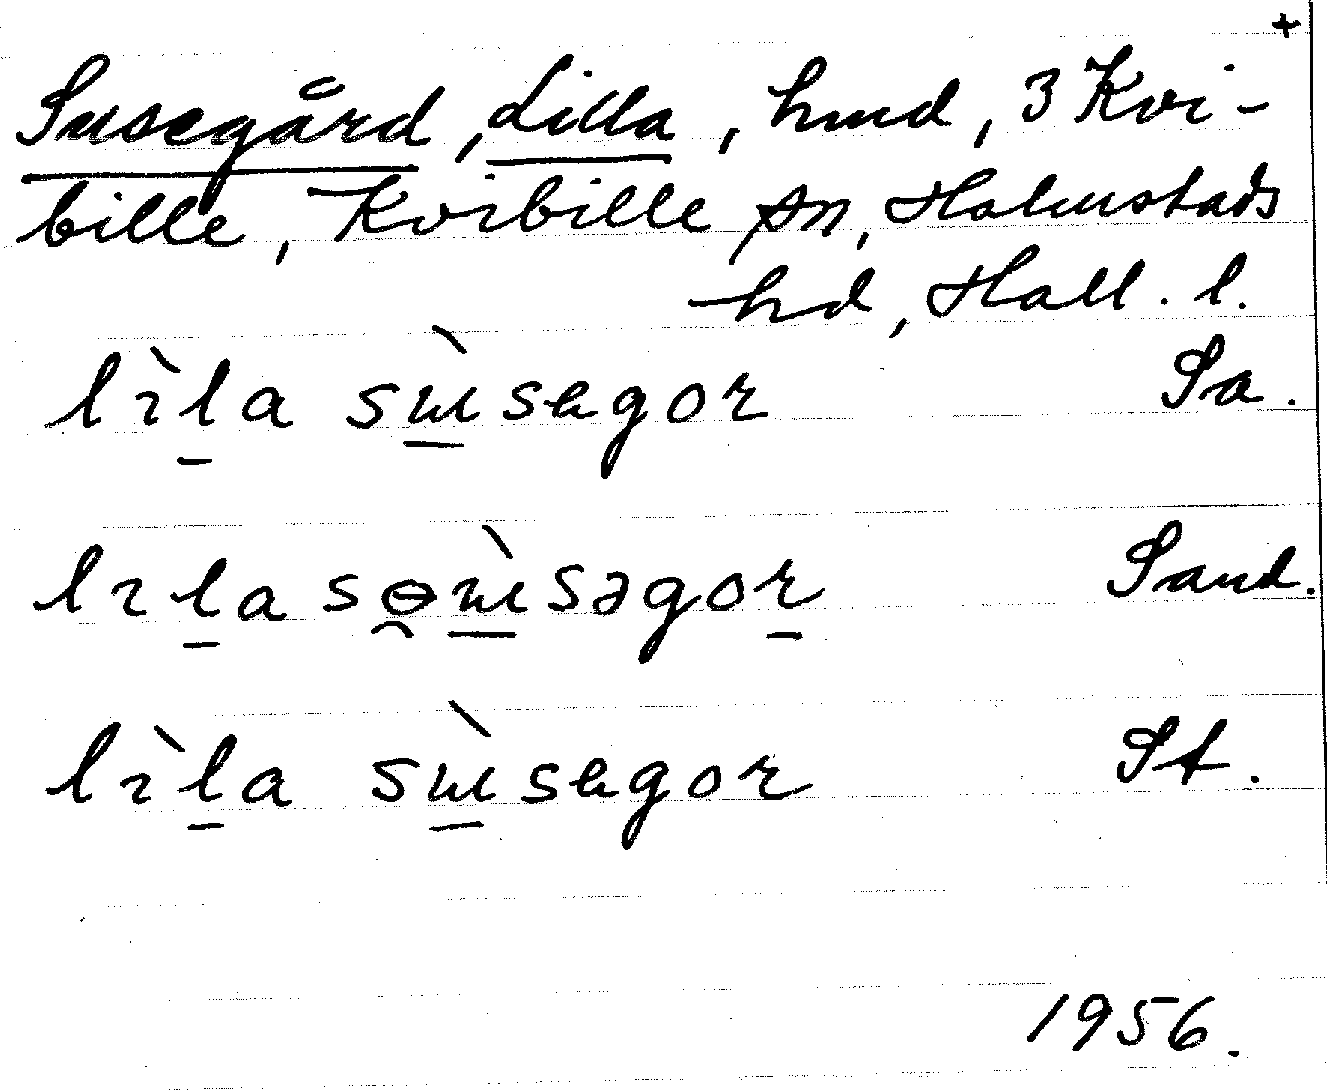 +
Susegård, Lilla, hmd, 3 Kvi-
bille, Kvibille sn, Halmstads
hd, Hall. l.
lɩ̀la sɯ̀segor Sa.
lɩla sɵɯ̀səgor Sand.
lɩ̀la sɯ̀segor St.
1956.